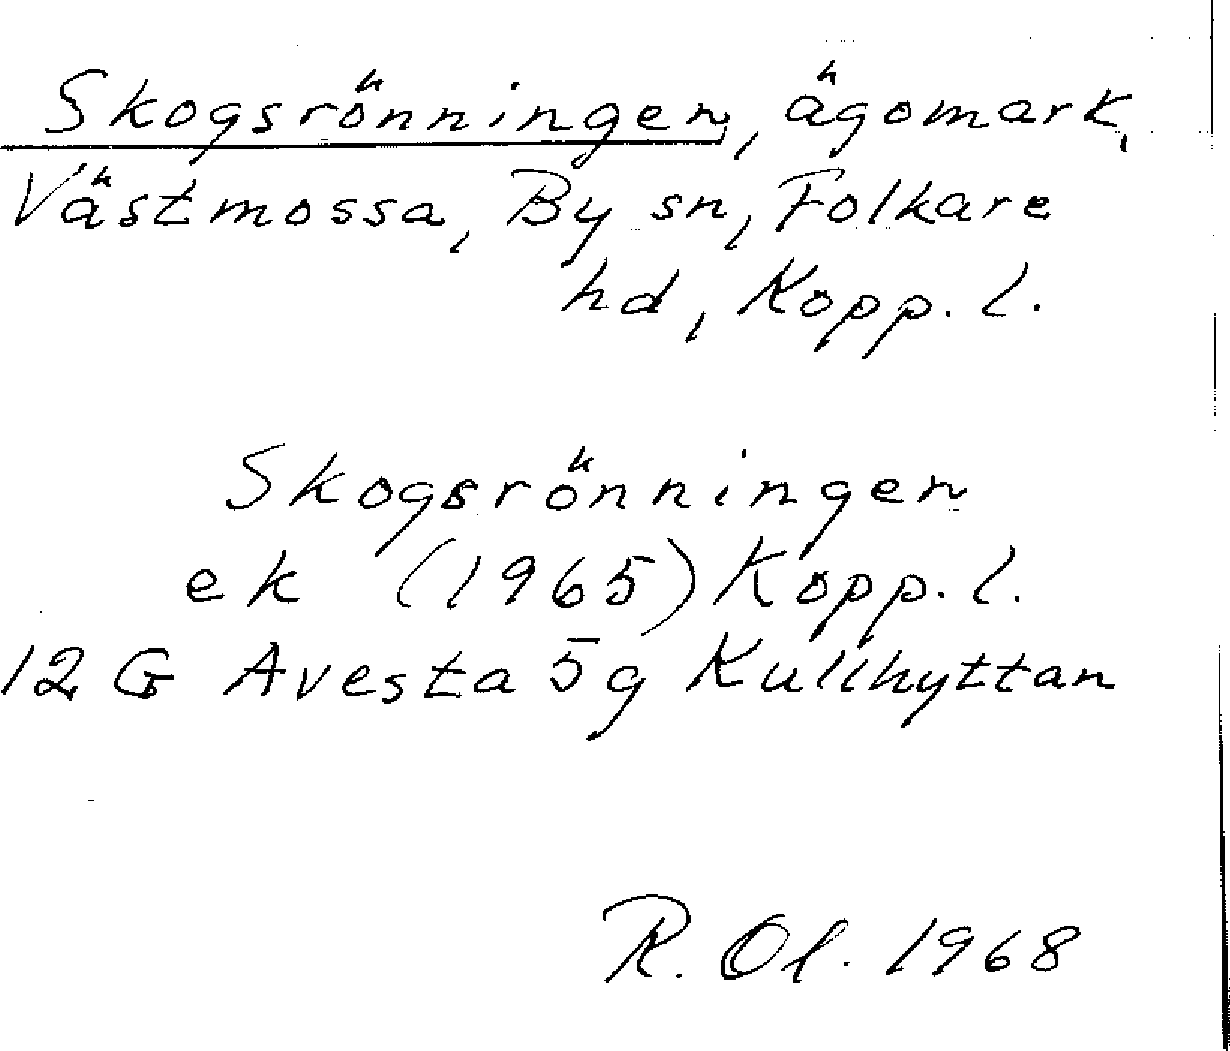 Skogsrönningen, ägomark,
Västmossa, By sn, Folkare
hd, Kopp. l.
Skogsrönningen
ek (1965) Kopp. l.
12 G Avesta 5g Kullhyttan
R. Ol. 1968